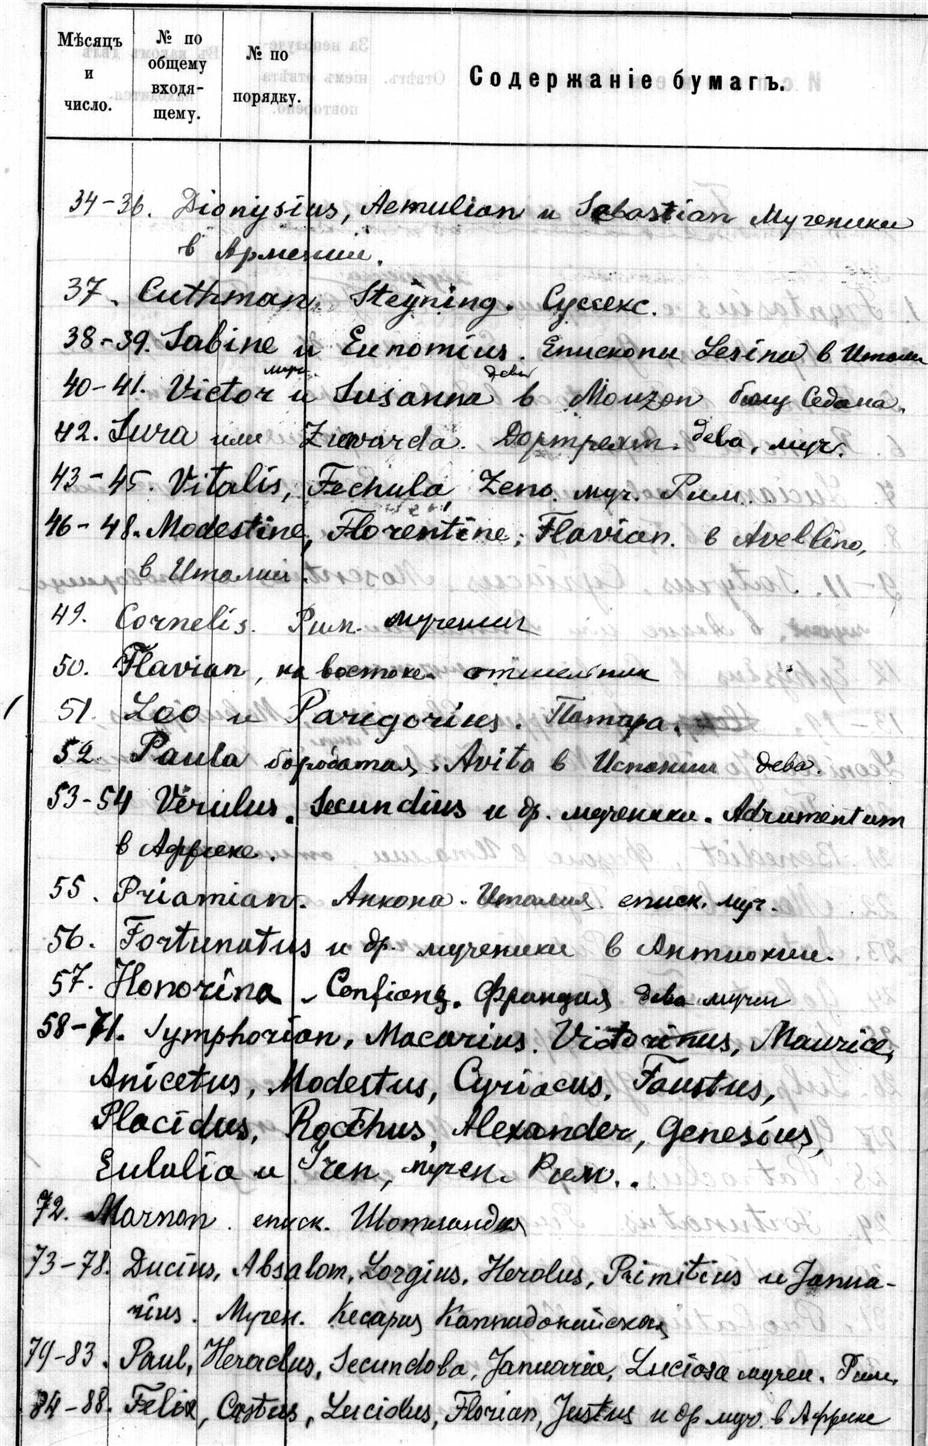 Мѣсяцъ и число.
№ по общему входя-щему.
№ по порядку.
Содержаніе бумагъ.
34-36. Dionysius, Aemulian и Sebastian Мученики
в Армении.
37. Cuthman. Steyning. Суссекс.
38-39. Sabine и Eunomius. Епископы Lesina в Италии
40-41. Victor муч. и Susanna дева в Mouzon близ Седана.
42. Sura или Zuwarda. Дортрехт. дева, муч.
43-45. Vitalis, Fechula Zeno. муч. Рим.
46-48. Modestine, Florentine, Flavian. в Avellino,
в Италии.
49. Cornelis. Рим. мученик
50. Flavian, на востоке. отшельник
51. Leo и Paregorius. Патара.
52. Paula бородатая. Avila в Испании дева.
53-54 Verulus. Secundius и др. мученики. Adrumentum
в Африке.
55. Priamian. Анкона. Италия. еписк. муч.
56. Fortunatus и др. мученики в Антиохии.
57. Honorina. Conflans. Франция дева мучен
58-71. Symphorian, Macarius. Victorinus, Maurice,
Anicetus, Modestus, Cyriacus, Faustus,
Placidus, Rochus, Alexander, Genesius,
Eulalia и Iren, мучен. Рим..
72. Marnan. еписк. Шотландия
73-78. Ducius, Absalom, Lorgius, Herolus, Primitius и Janua-
rius. Мучен. Кесария Каппадокийская
79-83. Paul, Heraclus, Secundola, Januaria, Luciosa мучен. Рим.
84-88. Felix, Castus, Lucidus, Florian, Justus и др муч. в Африке